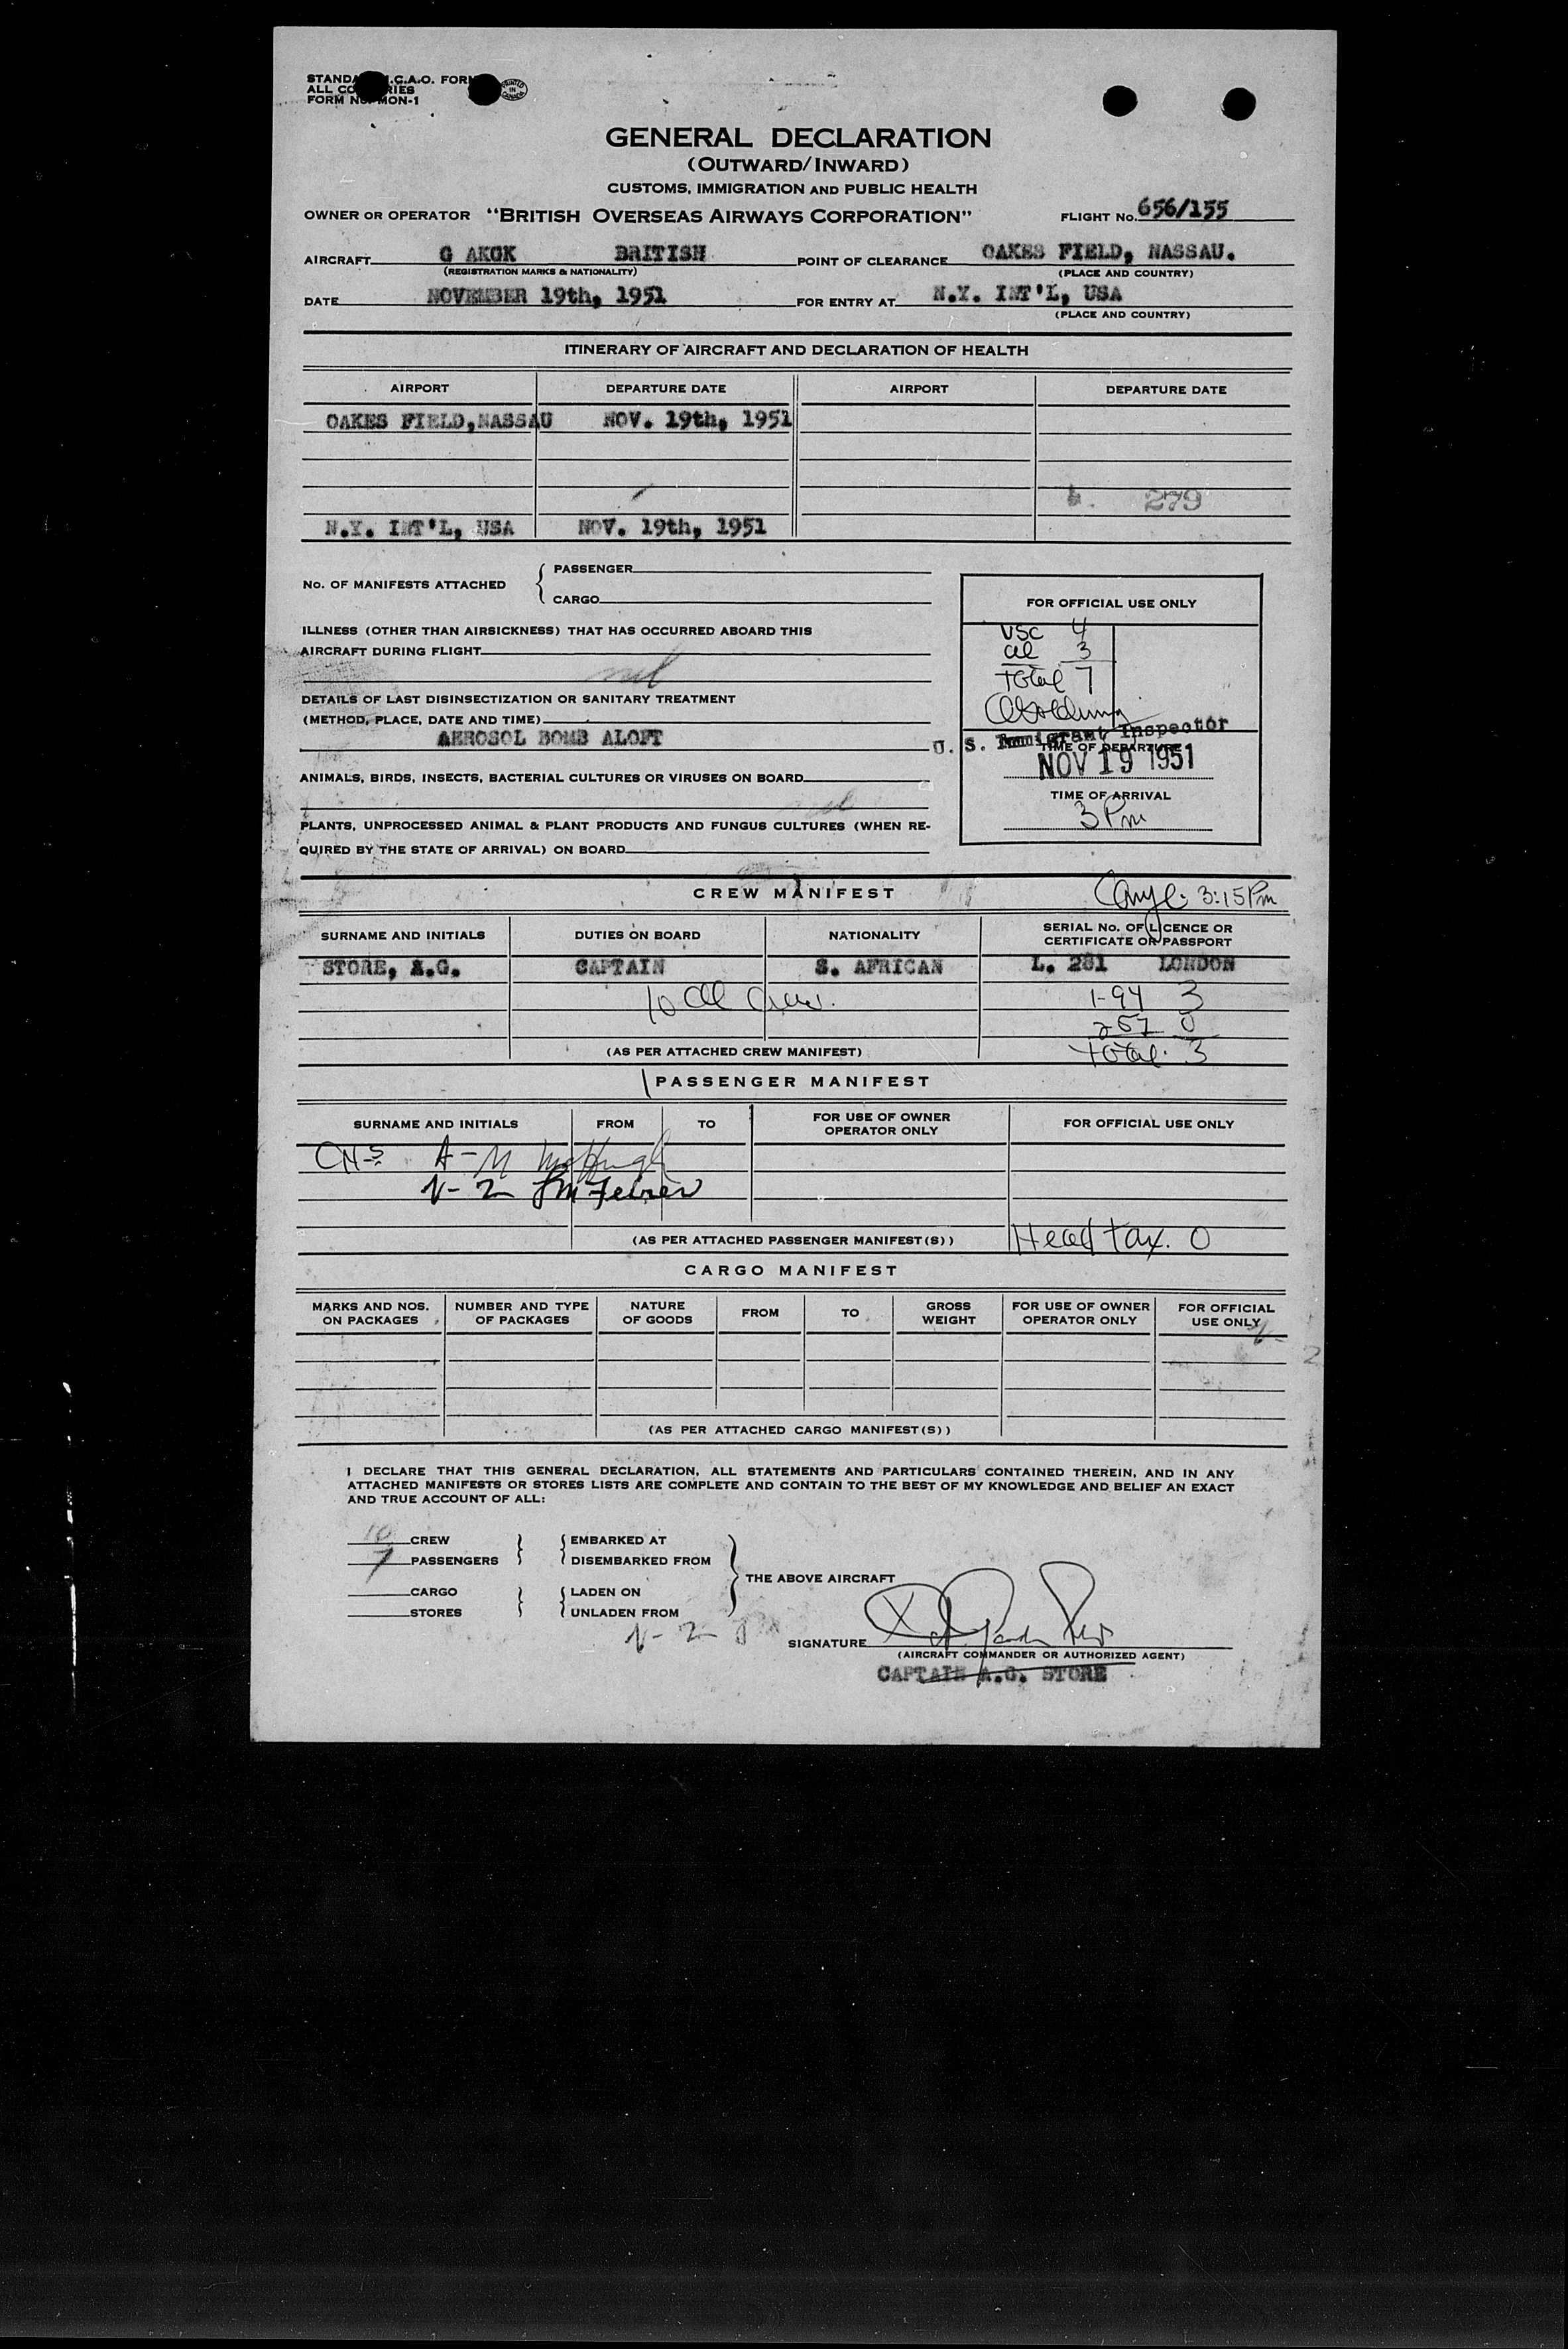 STANDA I.C.A.O. FORM
ALL CO RIES
FORM NO. MON-1
PRINTED IN CANADA
GENERAL DECLARATION
(OUTWARD/INWARD)
CUSTOMS, IMMIGRATION AND PUBLIC HEALTH
OWNER OR OPERATOR "BRITISH OVERSEAS AIRWAYS CORPORATION" FLIGHT No. 656/155
AIRCRAFT G AKGK BRITISH POINT OF CLEARANCE OAKES FIELD, NASSAU.
(REGISTRATION MARKS & NATIONALITY) (PLACE AND COUNTRY)
DATE NOVEMBER 19th, 1951 FOR ENTRY AT N.Y. INT'L, USA
(PLACE AND COUNTRY)
ITINERARY OF AIRCRAFT AND DECLARATION OF HEALTH
AIRPORT DEPARTURE DATE AIRPORT DEPARTURE DATE
OAKES FIELD,NASSAU NOV. 19th, 1951
279
N.Y. INT'L, USA NOV. 19th, 1951
No. OF MANIFESTS ATTACHED { PASSENGER
CARGO
FOR OFFICIAL USE ONLY
USC 4
al 3
Total 7
U. S. Immigrant Inspector
TIME OF DEPARTURE
NOV 19 1951
TIME OF ARRIVAL
3 Pm
ILLNESS (OTHER THAN AIRSICKNESS) THAT HAS OCCURRED ABOARD THIS
AIRCRAFT DURING FLIGHT
nil
DETAILS OF LAST DISINSECTIZATION OR SANITARY TREATMENT
(METHOD, PLACE, DATE AND TIME)
AEROSOL BOMB ALOFT
ANIMALS, BIRDS, INSECTS, BACTERIAL CULTURES OR VIRUSES ON BOARD
PLANTS, UNPROCESSED ANIMAL & PLANT PRODUCTS AND FUNGUS CULTURES (WHEN RE-
QUIRED BY THE STATE OF ARRIVAL) ON BOARD
CREW MANIFEST 3:15 Pm
SURNAME AND INITIALS DUTIES ON BOARD NATIONALITY SERIAL No. OF LICENCE OR CERTIFICATE OR PASSPORT
STORE, A.G. CAPTAIN S. AFRICAN L. 281 LONDON
10 al crew. 1-94 3
257 0
(AS PER ATTACHED CREW MANIFEST) Total. 3
PASSENGER MANIFEST
SURNAME AND INITIALS FROM TO FOR USE OF OWNER OPERATOR ONLY FOR OFFICIAL USE ONLY
A-M McHugh
N-Z
(AS PER ATTACHED PASSENGER MANIFEST(S)) Head tax. 0
CARGO MANIFEST
MARKS AND NOS. ON PACKAGES NUMBER AND TYPE OF PACKAGES NATURE OF GOODS FROM TO GROSS WEIGHT FOR USE OF OWNER OPERATOR ONLY FOR OFFICIAL USE ONLY
(AS PER ATTACHED CARGO MANIFEST(S))
I DECLARE THAT THIS GENERAL DECLARATION, ALL STATEMENTS AND PARTICULARS CONTAINED THEREIN, AND IN ANY
ATTACHED MANIFESTS OR STORES LISTS ARE COMPLETE AND CONTAIN TO THE BEST OF MY KNOWLEDGE AND BELIEF AN EXACT
AND TRUE ACCOUNT OF ALL:
10 CREW } { EMBARKED AT
7 PASSENGERS } { DISEMBARKED FROM
} THE ABOVE AIRCRAFT
CARGO } { LADEN ON
STORES } { UNLADEN FROM
N-Z
SIGNATURE
(AIRCRAFT COMMANDER OR AUTHORIZED AGENT)
CAPTAIN A.G. STORE